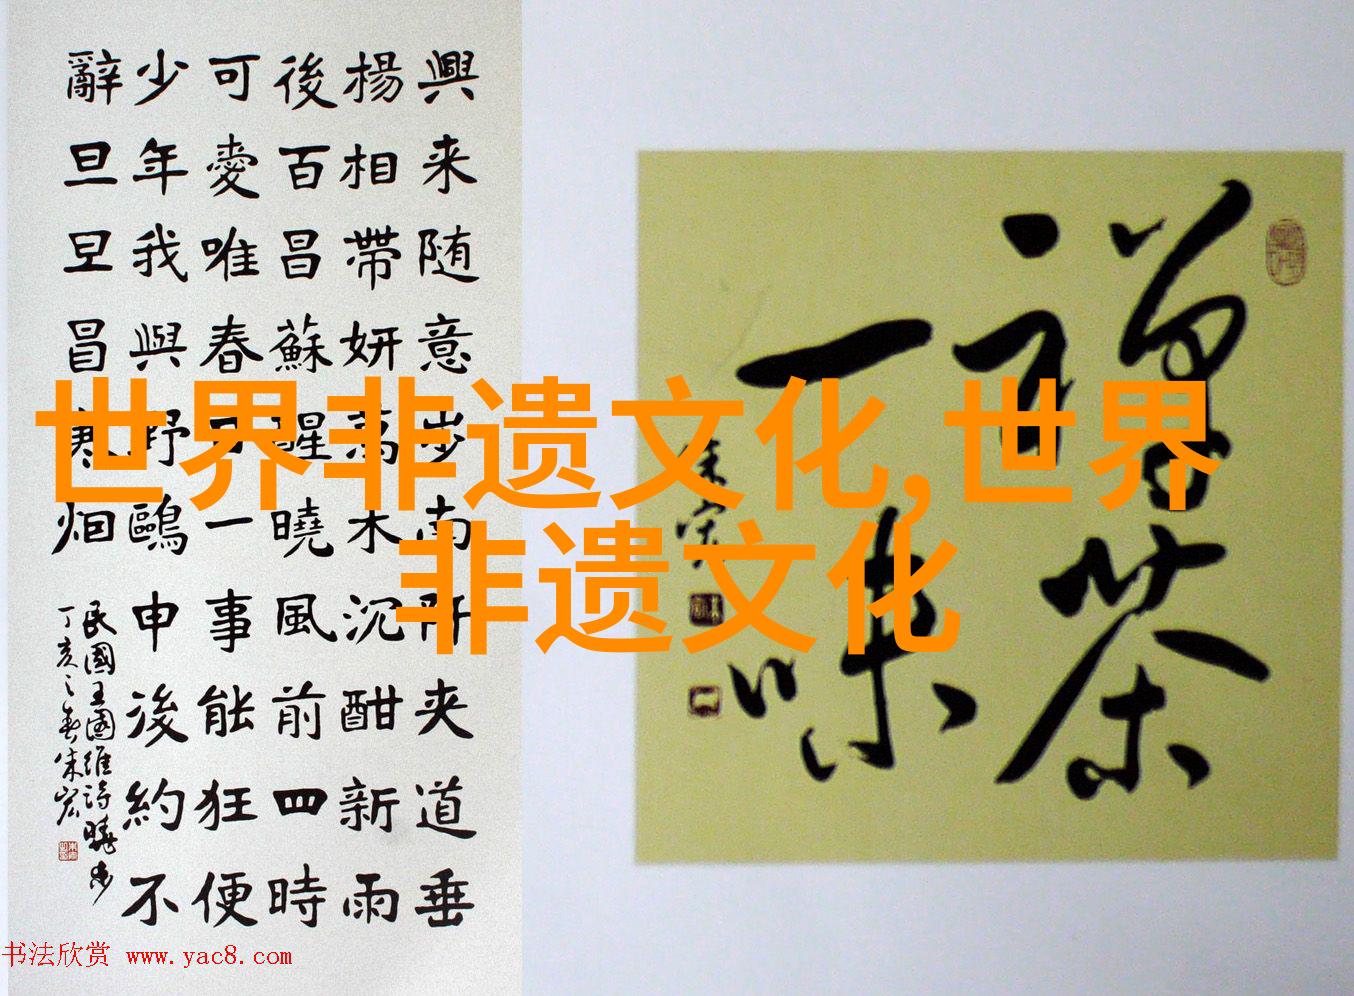 興来随意步南阡夹道垂
楊相帶妍萬木沉酣新雨
後百昌蘇醒曉風前四時
可愛唯春日一事能狂便
少年我與野鷗申後約不
辭旦旦冒寒烟
民國王國維詩曉步
丁亥之春朱宏
禪茶
一味
朱宏
世界非遗文化,世界
非遗文化
书法欣赏 www.yac8.com